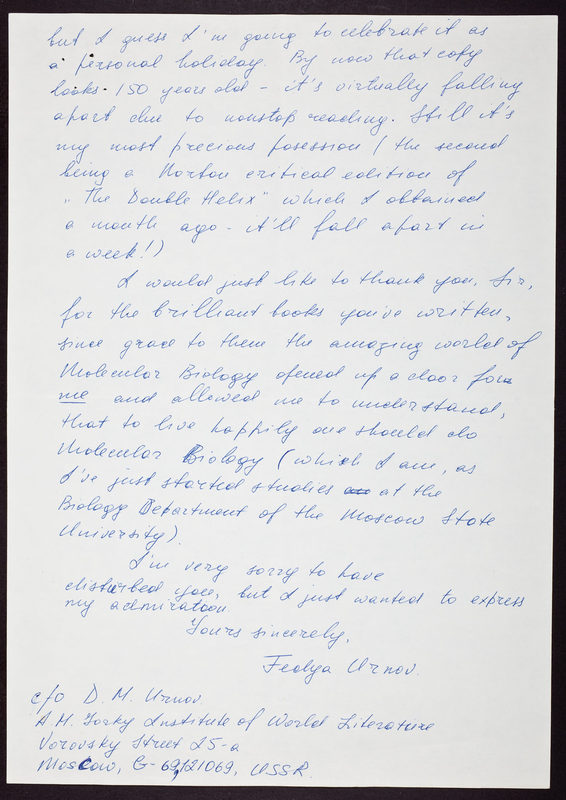 but I guess I'm going to celebrate it as
a personal holiday. By now that copy
looks 150 years old - it's virtually falling
apart due to nonstop reading. Still it's
my most precious posession (the second
being a Norton critical edition of
„The Double Helix" which I obtained
a month ago - it'll fall apart in
a week!)
I would just like to thank you, Sir,
for the brilliant books you've written,
since grace to them the amazing world of
Molecular Biology opened up a door for
me and allowed me to understand,
that to live happily one should do
Molecular Biology (which I am, as
I've just started studies at the
Biology Department of the Moscow State
University).
I'm very sorry to have
disturbed you, but I just wanted to express
my admiration
Yours sincerely,
Fedya Urnov.
c/o D. M. Urnov
A.M. Gorky Institute of World Literature
Vorovsky Street 25-a
Moscow, G-69, 121069, USSR.